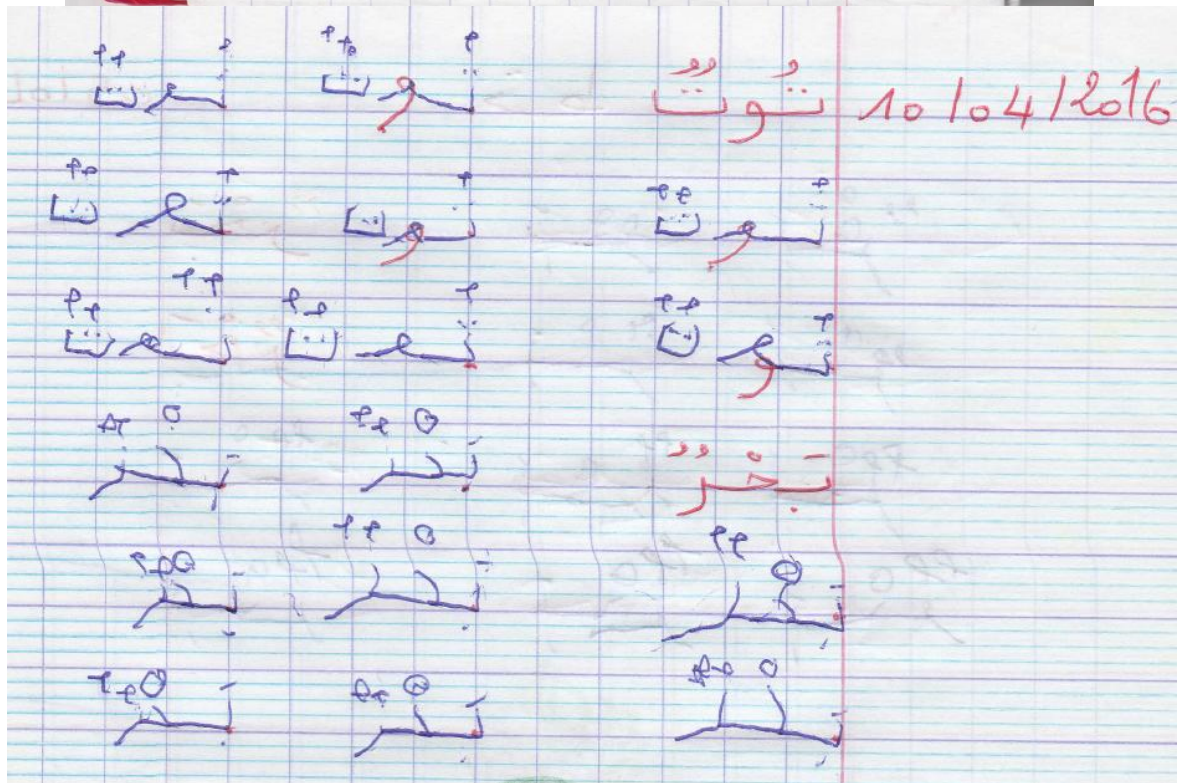 10/04/2016 تُوتٌ تُوتٌ تُوتٌ
تُوتٌ تُوتٌ تُوتٌ
تُوتٌ تُوتٌ تُوتٌ
بَحْرٌ بَحْرٌ بَحْرٌ
بَحْرٌ بَحْرٌ بَحْرٌ
بَحْرٌ بَحْرٌ بَحْرٌ